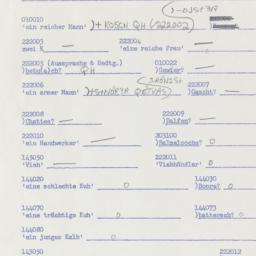 010010
'ein reicher Mann' )+ KOSCN QH (/222002)
222003 222004
zwei K 'eine reiche Frau'
222003 (Aussprache & Bedtg.) 010022
)betu(a)ch? QH )Gewier?
222006 222007
'ein armer Mann' )+ )Gancht?
222008 222009
)Chaties? )Delfen?
222010 203100
'ein Handwerker' )Balmelochs? 0
143050 222011
'Vieh' 'Viehhändler' 0
144020 144030
'eine schlechte Kuh' 0 )Bonre? 0
144070 144073
'eine trächtige Kuh' 0 )battersch? 0
144080
'ein junges Kalb' 0
143050 222012